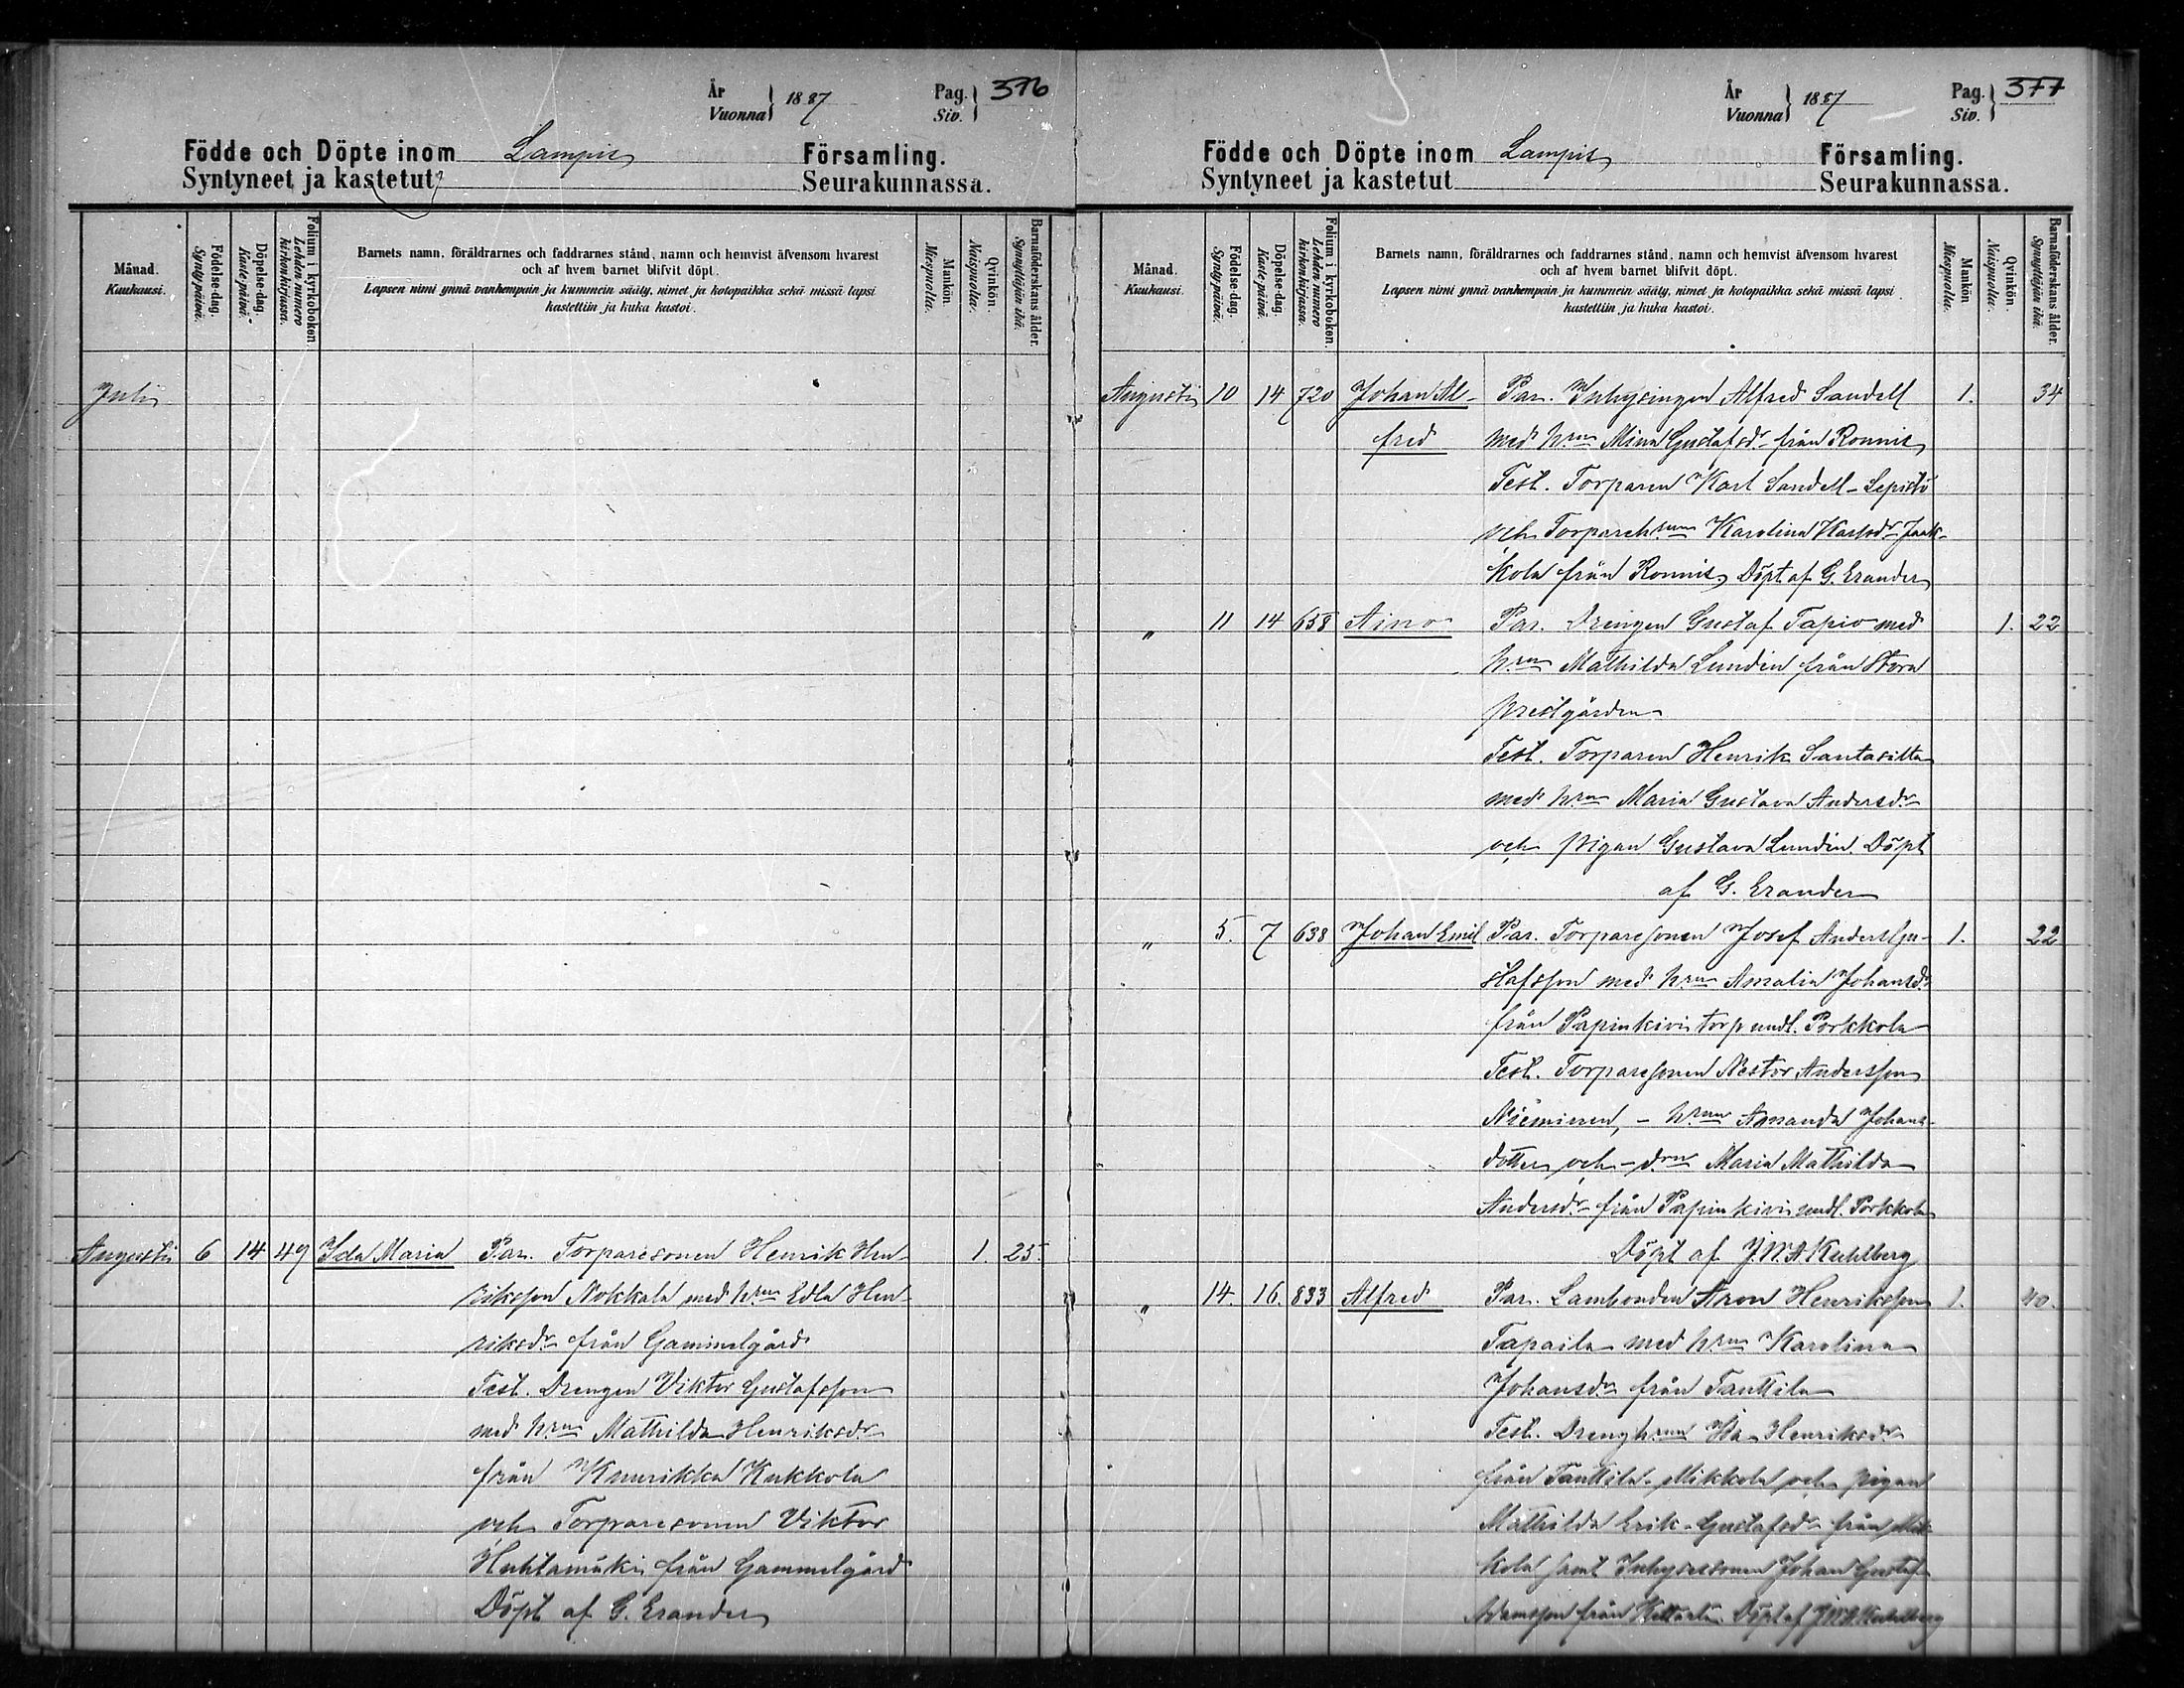 År 1887 Pag. 376
Vuonna Siv.
Födde och Döpte inom Lampis Församling.
Syntyneet ja kastetut Seurakunnassa.
Månad. Kuukausi.
Födelse-dag. Syntypäivä.
Döpelse-dag. Kastepäivä.
Folium i kyrkoboken. Lehden numero kirkonkirjassa.
Barnets namn, föräldrarnes och faddrarnes stånd, namn och hemvist äfvensom hvarest
och af hvem barnet blifvit döpt.
Lapsen nimi ynnä vanhempain ja kummein sääty, nimet ja kotopaikka sekä missä lapsi
kastettiin ja kuka kastoi.
Mankön. Miespuolia.
Qvinkön. Naispuolia.
Barnaföderskans ålder. Synnyttäjän ikä.
Juli
Augusti 6 14 49 Ida Maria Par. Torparesonen Henrik Hen- 1. 25.
riksson Nokkala med h:run Edla Hen-
riksdr från Gammelgård
Test. Drengen Viktor Gustafsson
med h:run Mathilda Henriksdr
från Kuurikka Kukkola
och Torparesonen Viktor
Huhtamäki från Gammelgård
Döpt af G. Erander
År 1887 Pag. 377
Vuonna Siv.
Födde och Döpte inom Lampis Församling.
Syntyneet ja kastetut Seurakunnassa.
Månad. Kuukausi.
Födelse-dag. Syntypäivä.
Döpelse-dag. Kastepäivä.
Folium i kyrkoboken. Lehden numero kirkonkirjassa.
Barnets namn, föräldrarnes och faddrarnes stånd, namn och hemvist äfvensom hvarest
och af hvem barnet blifvit döpt.
Lapsen nimi ynnä vanhempain ja kummein sääty, nimet ja kotopaikka sekä missä lapsi
kastettiin ja kuka kastoi.
Mankön Miespuolia.
Qvinkön. Naispuolia.
Barnaföderskans ålder. Synnyttäjän ikä.
Augusti 10 14 720 Johan Al- Par. Inhysingen Alfred Sandell 1. 34
fred med h:run Mina Gustafsdr från Ronnis
Test. Torparen Karl Sandell-Lepistö
och Torpareh:run Karolina Karlsdr Jaak-
kola från Ronnis, Döpt af G. Erander
" 11 14 658 Aino Par. Drengen Gustaf Tapio med 1. 22
h:run Mathilda Lundin från Stora
prestgården
Test. Torparen Henrik Santasilta
med h:run Maria Gustava Andersdr
och pigan Gustava Lundin. Döpt
af G. Erander
" 5. 7 638 Johan Emil Par. Torparesonen Josef Anders Gu- 1. 22
stafsson med h:run Amalia Johansdr
från Papinkivi torp undl. Porkkola
Test. Torparesonen Nestor Andersson
Nieminen, - h:run Amanda Johans-
dotter och - d:rn Maria Mathilda
Andersdr från Papinkivi undl. Porkkola
Döpt af J.W.A Kuhlberg
" 14. 16. 833 Alfred Par. Lambonden Aron Henriksson 1. 40.
Tapaila med h:run Karolina
Johansdr från Tanttila
Test. Drengh:run Ida Henriksdr
från Tanttila Mikkola och pigan
Mathilda Erik-Gustafsdr från Mik-
kola samt Inhysessonen Johan Gustaf
Adamsson från Döpt af J.W.A Kuhlberg